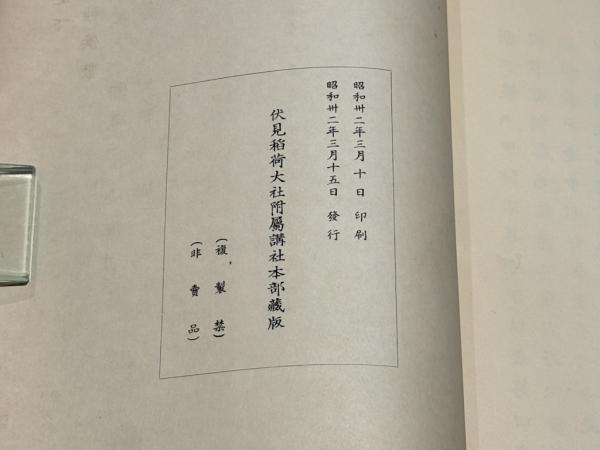 昭和卅二年三月十日印刷
昭和卅二年三月十五日發行
伏見稻荷大社附屬講社本部藏版
（複製禁）
（非賣品）